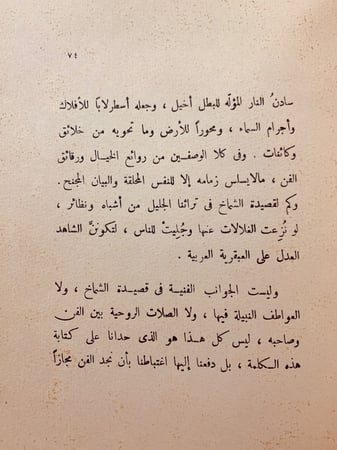 ٧٤
سادنُ النار المؤلّه للبطل أخيل ، وجعله أسطرلابًا للأفلاك
وأجرام السماء ، ومحوراً للأرض وما تحويه من خلائق
وكائنات . وفى كلا الوصفين من روائع الخيال ورقائق
الفن ، مالايسلس زمامه إلا للنفس المحلقة والبيان المجنح.
وكم لقصيدة الشماخ فى تراثنا الجليل من أشباه ونظائر ،
لو نُزعت الغلالات عنها وجُليتْ للناس ، لتكوننَّ الشاهد
العدلَ على العبقرية العربية .
وليست الجوانب الفنية فى قصيدة الشماخ ، ولا
العواطف النبيلة فيها ، ولا الصلات الروحية بين الفن
وصاحبه ، ليس كل هذا هو الذى حدانا على كتابة
هذه الكلمة ، بل دفعنا إليها اغتباطنا بأن نجد الفن مجازاً